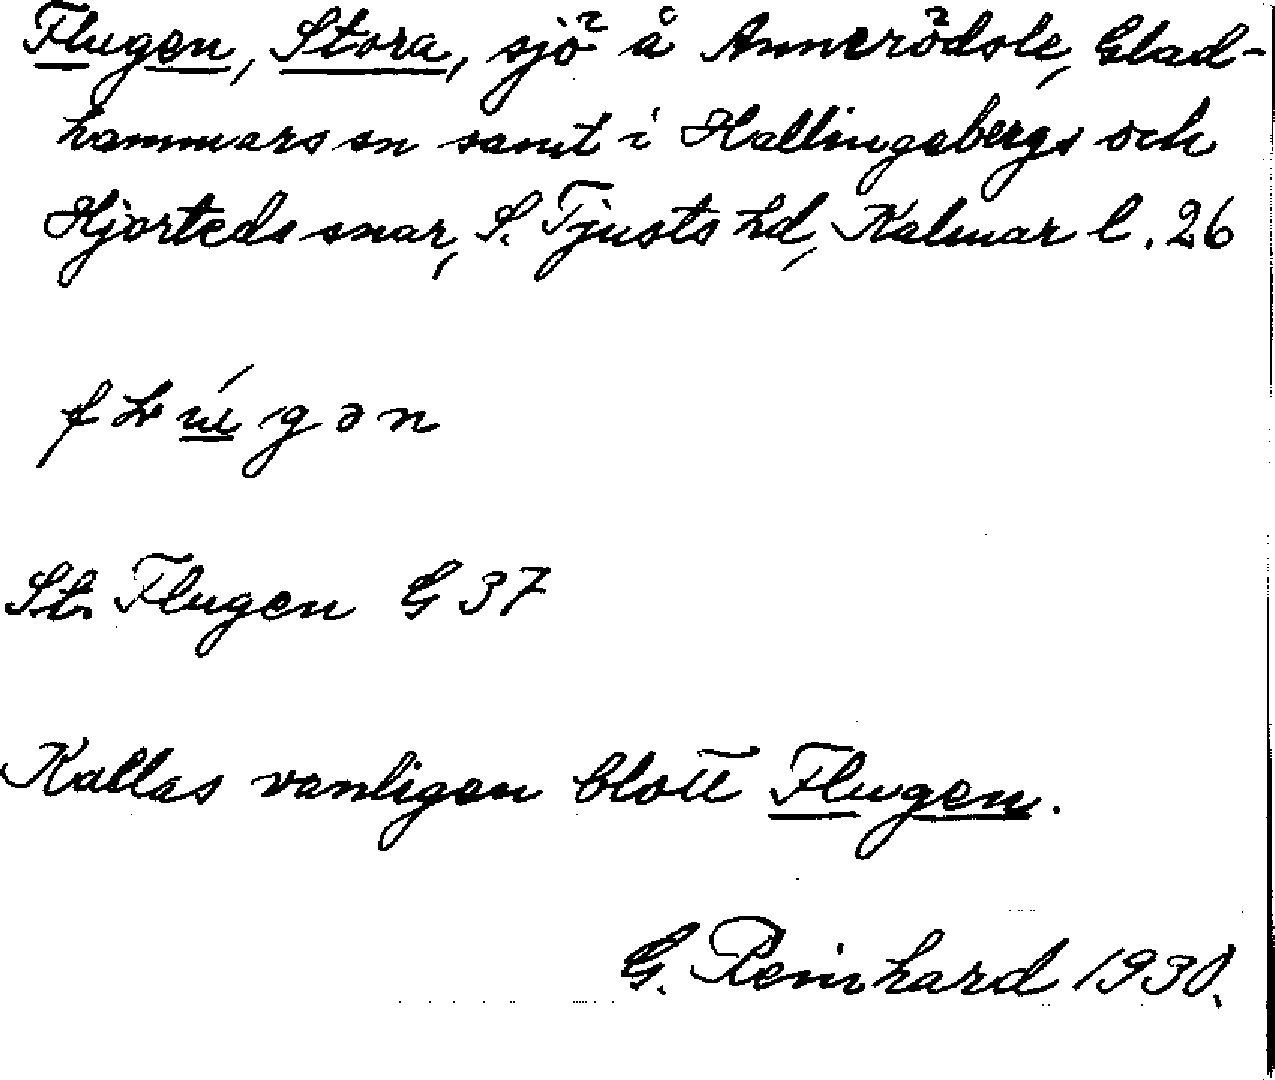 Flugen, Stora, sjö å Annerödsle, Glad-
hammars sn samt i Hallingebergs och
Hjorteds snar, S. Tjusts hd, Kalmar l. 26
St. Flugen G 37
Kallas vanligen blott Flugen.
G. Reinhard 1930.